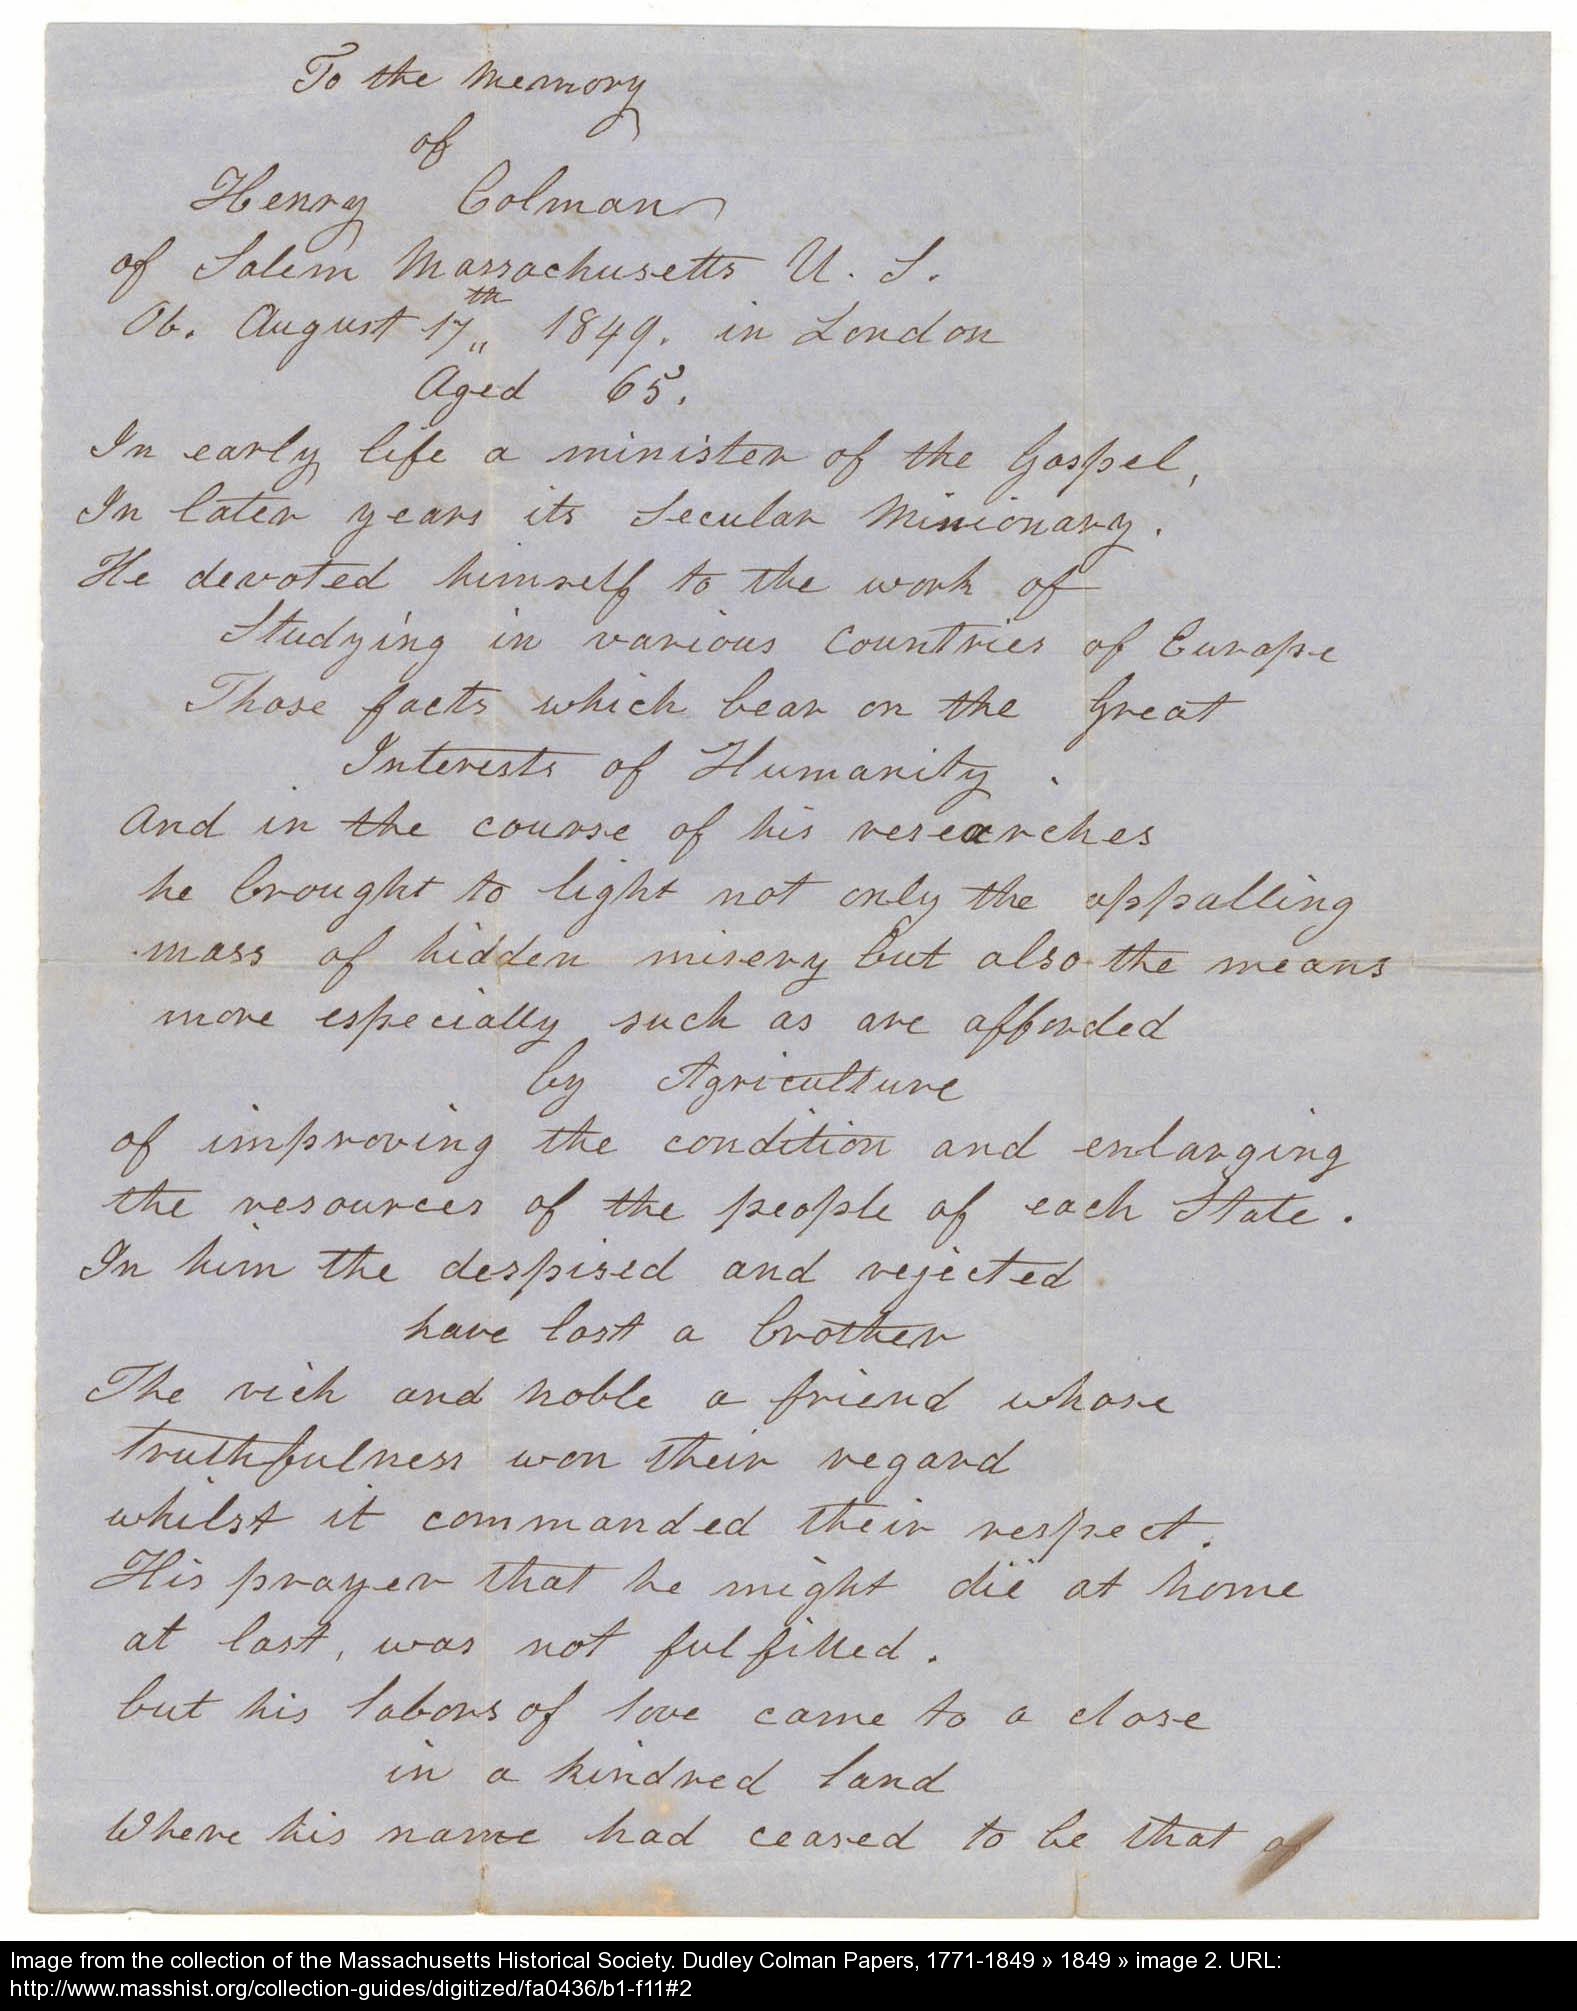 To the Memory
of
Henry Colman
of Salem Massachusetts U. S.
Ob. August 17th 1849. in London
Aged 65.
In early life a minister of the Gospel,
In later years its Secular Missionary.
He devoted himself to the work of
Studying in various Countries of Europe
Those facts which bear on the Great
Interests of Humanity.
And in the course of his researches
he brought to light not only the appalling
mass of hidden misery but also the means
more especially such as are afforded
by Agriculture
of improving the condition and enlarging
the resources of the people of each State.
In him the despised and rejected
have lost a brother
The rich and noble a friend whose
truthfulness won their regard
whilst it commanded their respect.
His prayer that he might die at home
at last, was not fulfilled.
but his labors of love came to a close
in a kindred land
Where his name had ceased to be that of
Image from the collection of the Massachusetts Historical Society. Dudley Colman Papers, 1771-1849 » 1849 » image 2. URL:
http://www.masshist.org/collection-guides/digitized/fa0436/b1-f11#2